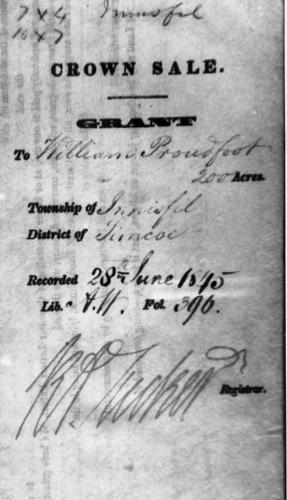 7 x 4 Innisfil
10 x 7
CROWN SALE.
GRANT
To William Proudfoot
200 Acres.
Township of Innisfil
District of Simcoe
Recorded 28th June 1845
Lib. A.H. Fol. 396.
R A Tucker
Registrar.